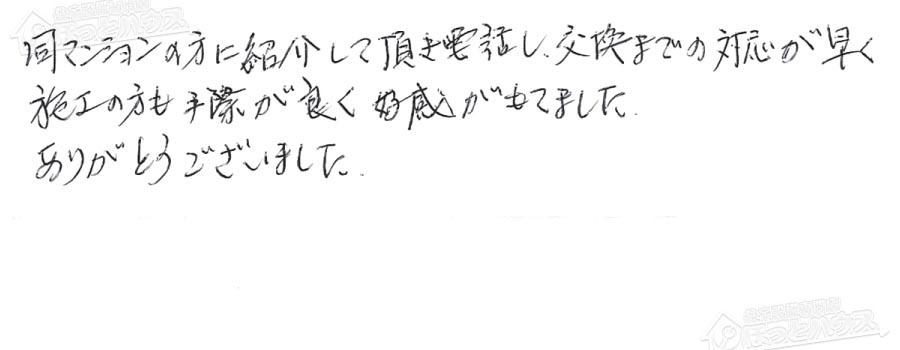 同マンションの方に紹介して頂き電話し、交換までの対応が早く
施工の方も手際が良く好感がもてました。
ありがとうございました。
ほっとハウス
ほっとハウス